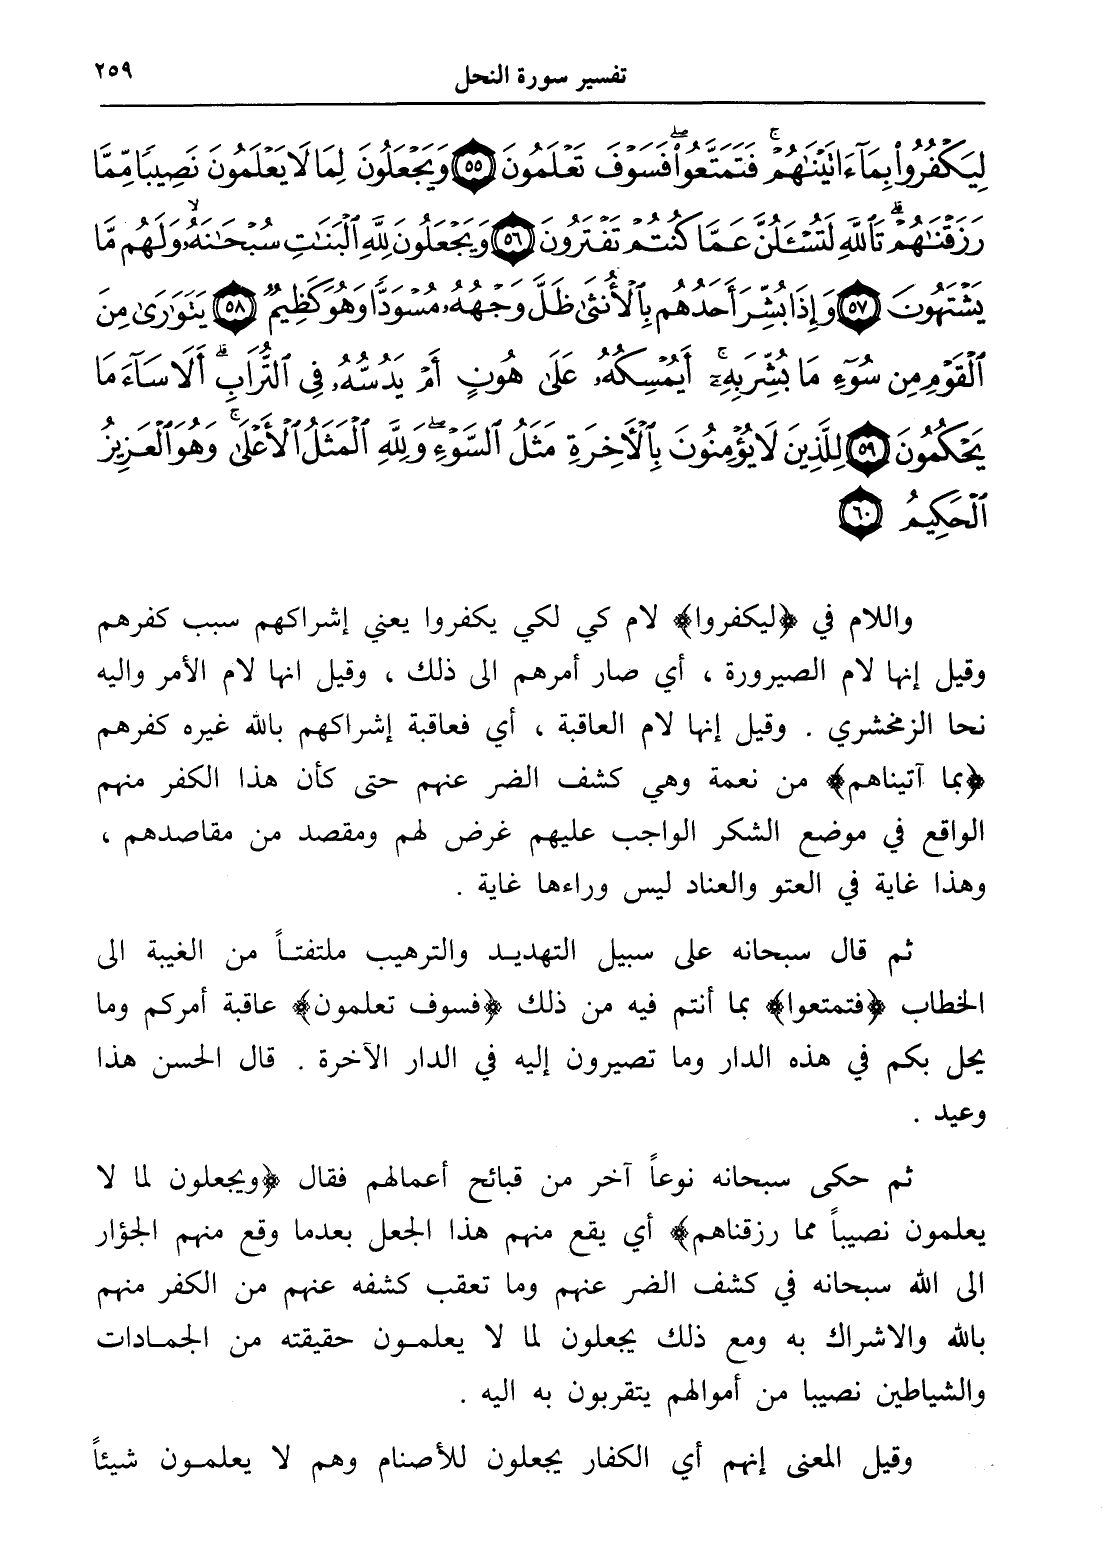 تفسير سورة النحل ٢٥٩
لِيَكْفُرُوا۟ بِمَآ ءَاتَيْنَـٰهُمْ ۚ فَتَمَتَّعُوا۟ ۖ فَسَوْفَ تَعْلَمُونَ ﴿٥٥﴾ وَيَجْعَلُونَ لِمَا لَا يَعْلَمُونَ نَصِيبًا مِّمَّا
رَزَقْنَـٰهُمْ ۗ تَٱللَّهِ لَتُسْـَٔلُنَّ عَمَّا كُنتُمْ تَفْتَرُونَ ﴿٥٦﴾ وَيَجْعَلُونَ لِلَّهِ ٱلْبَنَـٰتِ سُبْحَـٰنَهُۥ ۙ وَلَهُم مَّا
يَشْتَهُونَ ﴿٥٧﴾ وَإِذَا بُشِّرَ أَحَدُهُم بِٱلْأُنثَىٰ ظَلَّ وَجْهُهُۥ مُسْوَدًّا وَهُوَ كَظِيمٌ ﴿٥٨﴾ يَتَوَٰرَىٰ مِنَ
ٱلْقَوْمِ مِن سُوٓءِ مَا بُشِّرَ بِهِۦٓ ۚ أَيُمْسِكُهُۥ عَلَىٰ هُونٍ أَمْ يَدُسُّهُۥ فِى ٱلتُّرَابِ ۗ أَلَا سَآءَ مَا
يَحْكُمُونَ ﴿٥٩﴾ لِلَّذِينَ لَا يُؤْمِنُونَ بِٱلْـَٔاخِرَةِ مَثَلُ ٱلسَّوْءِ ۖ وَلِلَّهِ ٱلْمَثَلُ ٱلْأَعْلَىٰ ۚ وَهُوَ ٱلْعَزِيزُ
ٱلْحَكِيمُ ﴿٦٠﴾
واللام في ﴿ليكفروا﴾ لام كي لكي يكفروا يعني إشراكهم سبب كفرهم
وقيل إنها لام الصيرورة ، أي صار أمرهم الى ذلك ، وقيل انها لام الأمر واليه
نحا الزمخشري . وقيل إنها لام العاقبة ، أي فعاقبة إشراكهم بالله غيره كفرهم
﴿بما آتيناهم﴾ من نعمة وهي كشف الضر عنهم حتى كأن هذا الكفر منهم
الواقع في موضع الشكر الواجب عليهم غرض لهم ومقصد من مقاصدهم ،
وهذا غاية في العتو والعناد ليس وراءها غاية .
ثم قال سبحانه على سبيل التهديد والترهيب ملتفتاً من الغيبة الى
الخطاب ﴿فتمتعوا﴾ بما أنتم فيه من ذلك ﴿فسوف تعلمون﴾ عاقبة أمركم وما
يحل بكم في هذه الدار وما تصيرون إليه في الدار الآخرة . قال الحسن هذا
وعيد .
ثم حكى سبحانه نوعاً آخر من قبائح أعمالهم فقال ﴿ويجعلون لما لا
يعلمون نصيباً مما رزقناهم﴾ أي يقع منهم هذا الجعل بعدما وقع منهم الجؤار
الى الله سبحانه في كشف الضر عنهم وما تعقب كشفه عنهم من الكفر منهم
بالله والاشراك به ومع ذلك يجعلون لما لا يعلمون حقيقته من الجمادات
والشياطين نصيبا من أموالهم يتقربون به اليه .
وقيل المعنى إنهم أي الكفار يجعلون للأصنام وهم لا يعلمون شيئاً